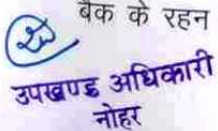 बैंक के रहन
उपखण्ड अधिकारी
नोहर